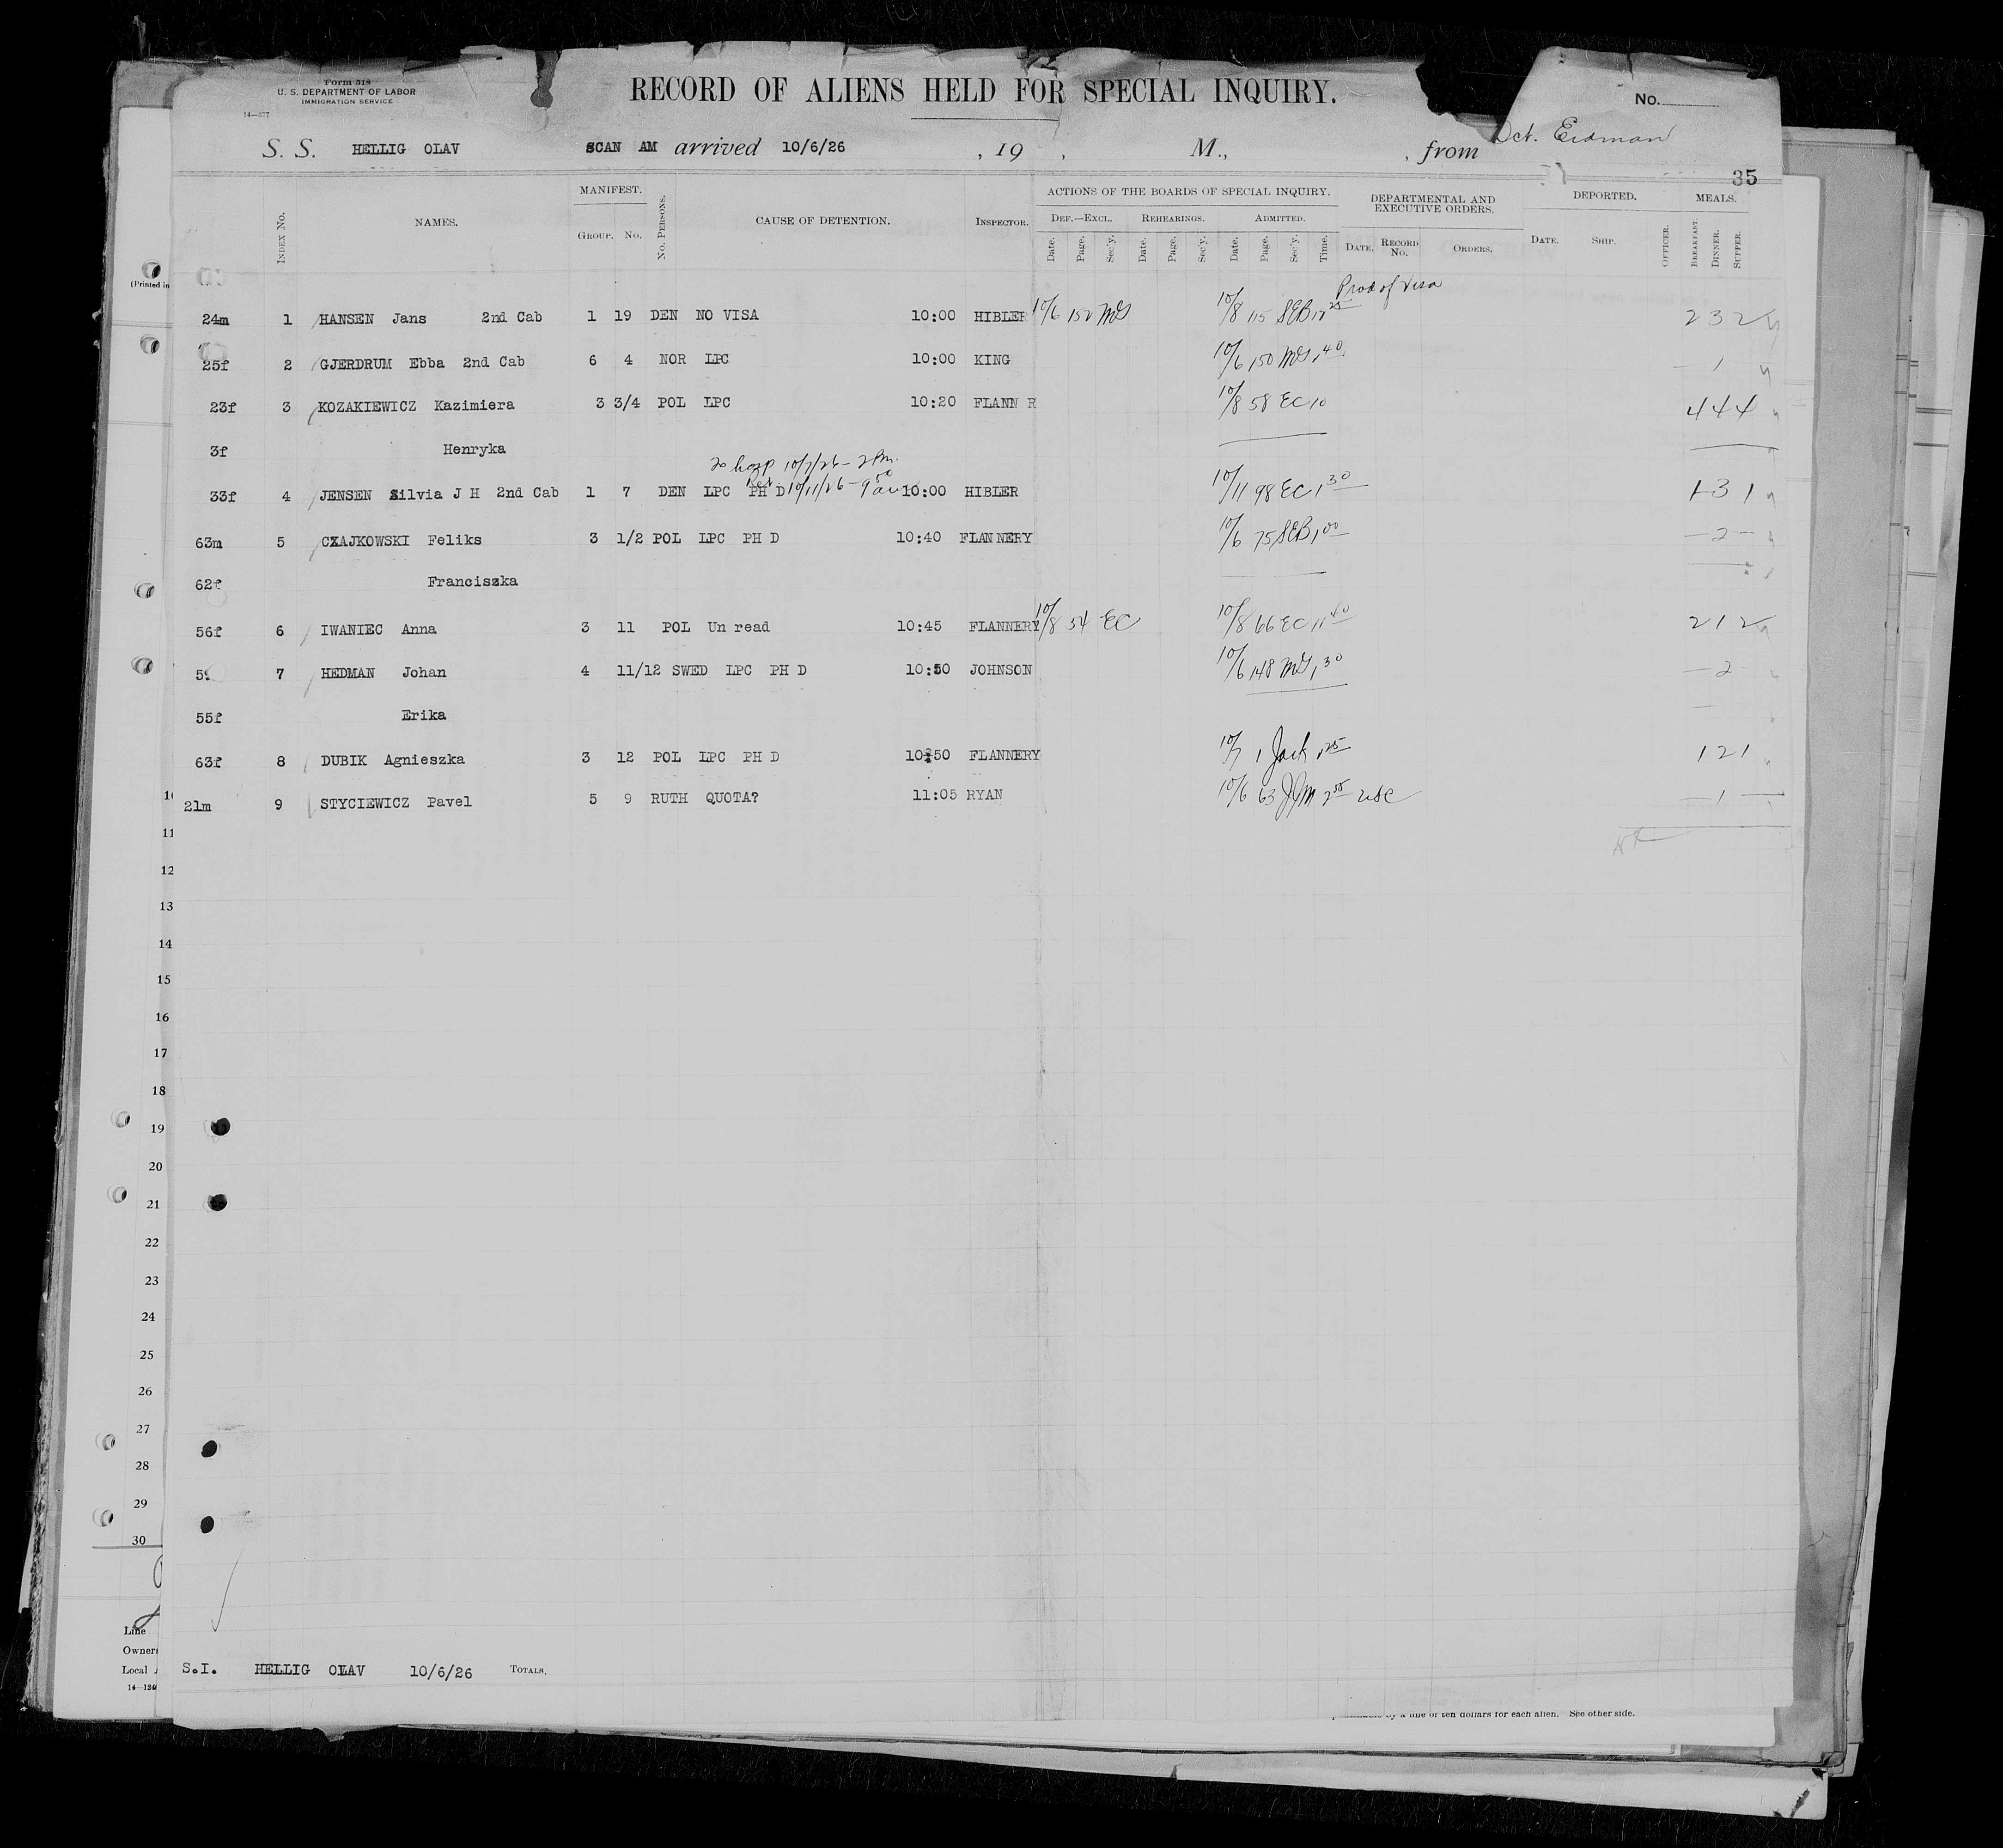 Form 518
U. S. DEPARTMENT OF LABOR
IMMIGRATION SERVICE
14—377
RECORD OF ALIENS HELD FOR SPECIAL INQUIRY.
No.
Oct. Erdman
S. S. HELLIG OLAV SCAN AM arrived 10/6/26 , 19 , M., , from
35
INDEX No. NAMES. MANIFEST. GROUP. No. No. PERSONS. CAUSE OF DETENTION. INSPECTOR. ACTIONS OF THE BOARDS OF SPECIAL INQUIRY. DEPARTMENTAL AND EXECUTIVE ORDERS. DEPORTED. MEALS.
DEF.—EXCL. REHEARINGS. ADMITTED.
Date. Page. Sec'y. Date. Page. Sec'y. Date. Page. Sec'y. Time. DATE. RECORD No. ORDERS. DATE. SHIP. OFFICER. BREAKFAST. DINNER. SUPPER.
(Printed in
Prod of Visa
24m 1 HANSEN Jans 2nd Cab 1 19 DEN NO VISA 10:00 HIBLER 10/6 152 MG 10/8 115 SEB 11 25 2 3 2
25f 2 GJERDRUM Ebba 2nd Cab 6 4 NOR LPC 10:00 KING 10/6 150 MG 1 40 — 1
23f 3 KOZAKIEWICZ Kazimiera 3 3/4 POL LPC 10:20 FLANN R 10/8 58 EC 10 4 4 4
3f Henryka
to hosp 10/7/26 - 2 Pm.
33f 4 JENSEN Silvia J H 2nd Cab 1 7 DEN LPC PH D 10/11/26 - 9 50 am 10:00 HIBLER 10/11 98 EC 1 30 1 3 1
63m 5 CZAJKOWSKI Feliks 3 1/2 POL LPC PH D 10:40 FLANNERY 10/6 75 SEB 1 00 — 2 —
62f Franciszka
56f 6 IWANIEC Anna 3 11 POL Un read 10:45 FLANNERY 10/8 54 EC 10/8 66 EC 11 40 2 1 2
59 7 HEDMAN Johan 4 11/12 SWED LPC PH D 10:50 JOHNSON 10/6 148 MG 1 30 — 2
55f Erika
63f 8 DUBIK Agnieszka 3 12 POL LPC PH D 10:50 FLANNERY 10/7 1 Jack 1 25 1 2 1
21m 9 STYCIEWICZ Pavel 5 9 RUTH QUOTA? 11:05 RYAN 10/6 63 JPM 2 55 USC — 1 —
11
12
13
14
15
16
17
18
19
20
21
22
23
24
25
26
27
28
29
30
Line
Owner
Local
14—124
S.I. HELLIG OLAV 10/6/26 TOTALS,
by a fine of ten dollars for each alien. See other side.